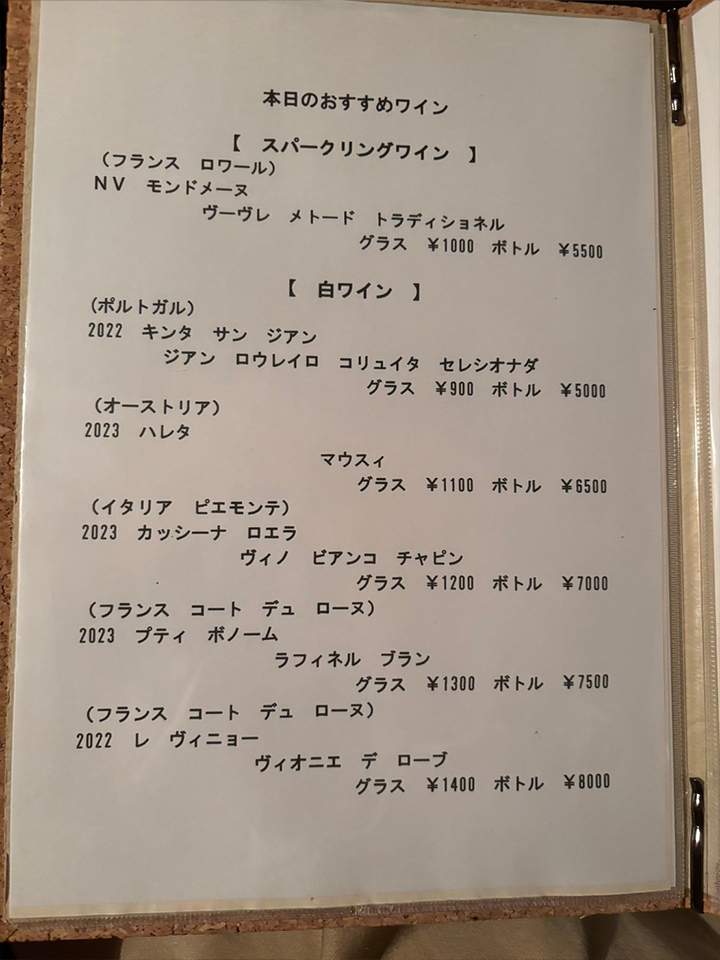 本日のおすすめワイン
【　スパークリングワイン　】
（フランス　ロワール）
ＮＶ　モンドメーヌ
ヴーヴレ　メトード　トラディショネル
グラス　￥1000　ボトル　￥5500
【　白ワイン　】
（ポルトガル）
2022　キンタ　サン　ジアン
ジアン　ロウレイロ　コリュイタ　セレシオナダ
グラス　￥900　ボトル　￥5000
（オーストリア）
2023　ハレタ
マウスィ
グラス　￥1100　ボトル　￥6500
（イタリア　ピエモンテ）
2023　カッシーナ　ロエラ
ヴィノ　ビアンコ　チャピン
グラス　￥1200　ボトル　￥7000
（フランス　コート　デュ　ローヌ）
2023　プティ　ボノーム
ラフィネル　ブラン
グラス　￥1300　ボトル　￥7500
（フランス　コート　デュ　ローヌ）
2022　レ　ヴィニョー
ヴィオニエ　デ　ローブ
グラス　￥1400　ボトル　￥8000